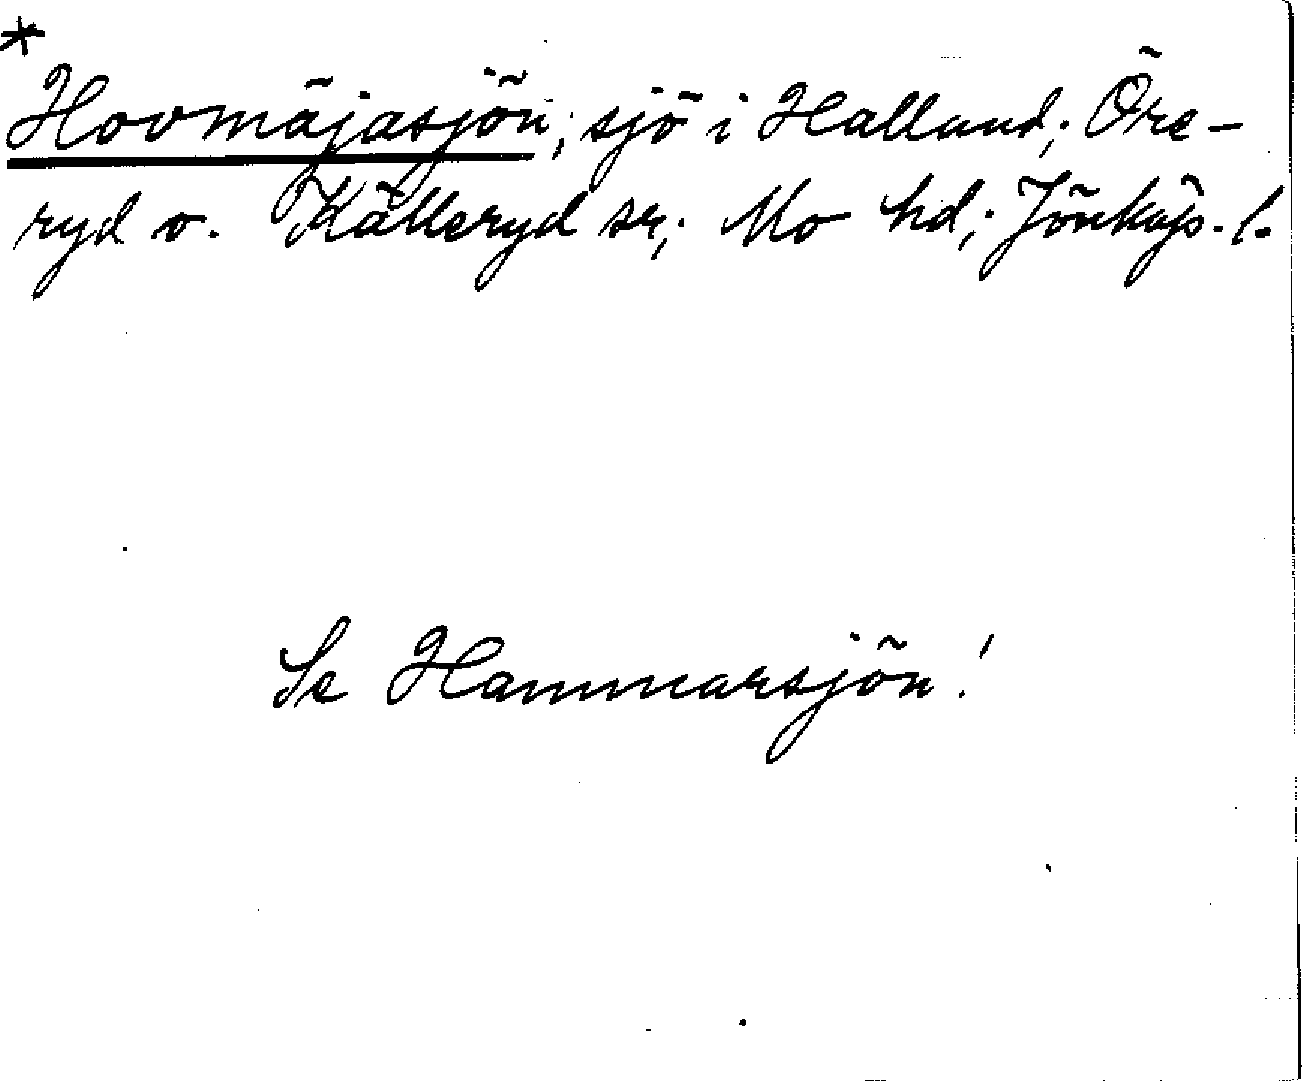 *
Hovmäjasjön; sjö i Halland; Öre-
ryd o. Källeryd sr; Mo hd; Jönköp. l.
Se Hammarsjön!